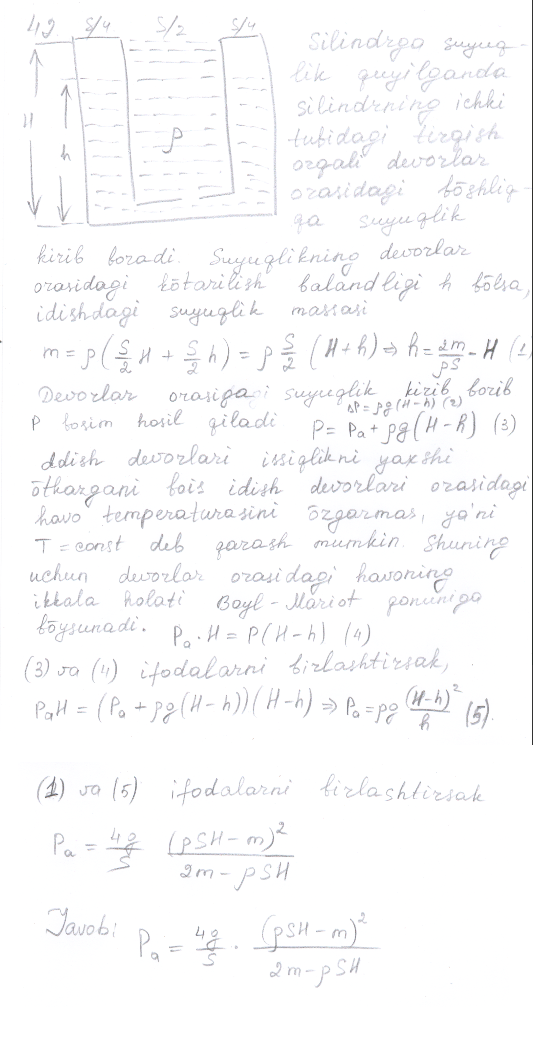 42. S/4 S/2 S/4
H h ρ
Silindrga suyuq-
lik quyilganda
silindrning ichki
tubidagi tirqish
orqali devorlar
orasidagi bõshliq-
qa suyuqlik
kirib boradi. Suyuqlikning devorlar
orasidagi kõtarilish balandligi h bõlsa,
idishdagi suyuqlik massasi
m = ρ(S/2 H + S/2 h) = ρ S/2 (H+h) ⇒ h = 2m/ρS - H (1)
Devorlar orasiga suyuqlik kirib borib
ΔP = ρg(H-h) (2)
P bosim hosil qiladi P = Pa + ρg(H-h) (3)
Idish devorlari issiqlikni yaxshi
õtkazgani bois idish devorlari orasidagi
havo temperaturasini õzgarmas, ya'ni
T = const deb qarash mumkin. Shuning
uchun devorlar orasidagi havoning
ikkala holati Boyl-Mariot qonuniga
bõysunadi. Pa · H = P(H-h) (4)
(3) va (4) ifodalarni birlashtirsak,
PaH = (Pa + ρg(H-h))(H-h) ⇒ Pa = ρg (H-h)²/h (5).
(1) va (5) ifodalarni birlashtirsak
Pa = 4g/S (ρSH-m)²/2m-ρSH
Javobi Pa = 4g/S · (ρSH-m)²/2m-ρSH